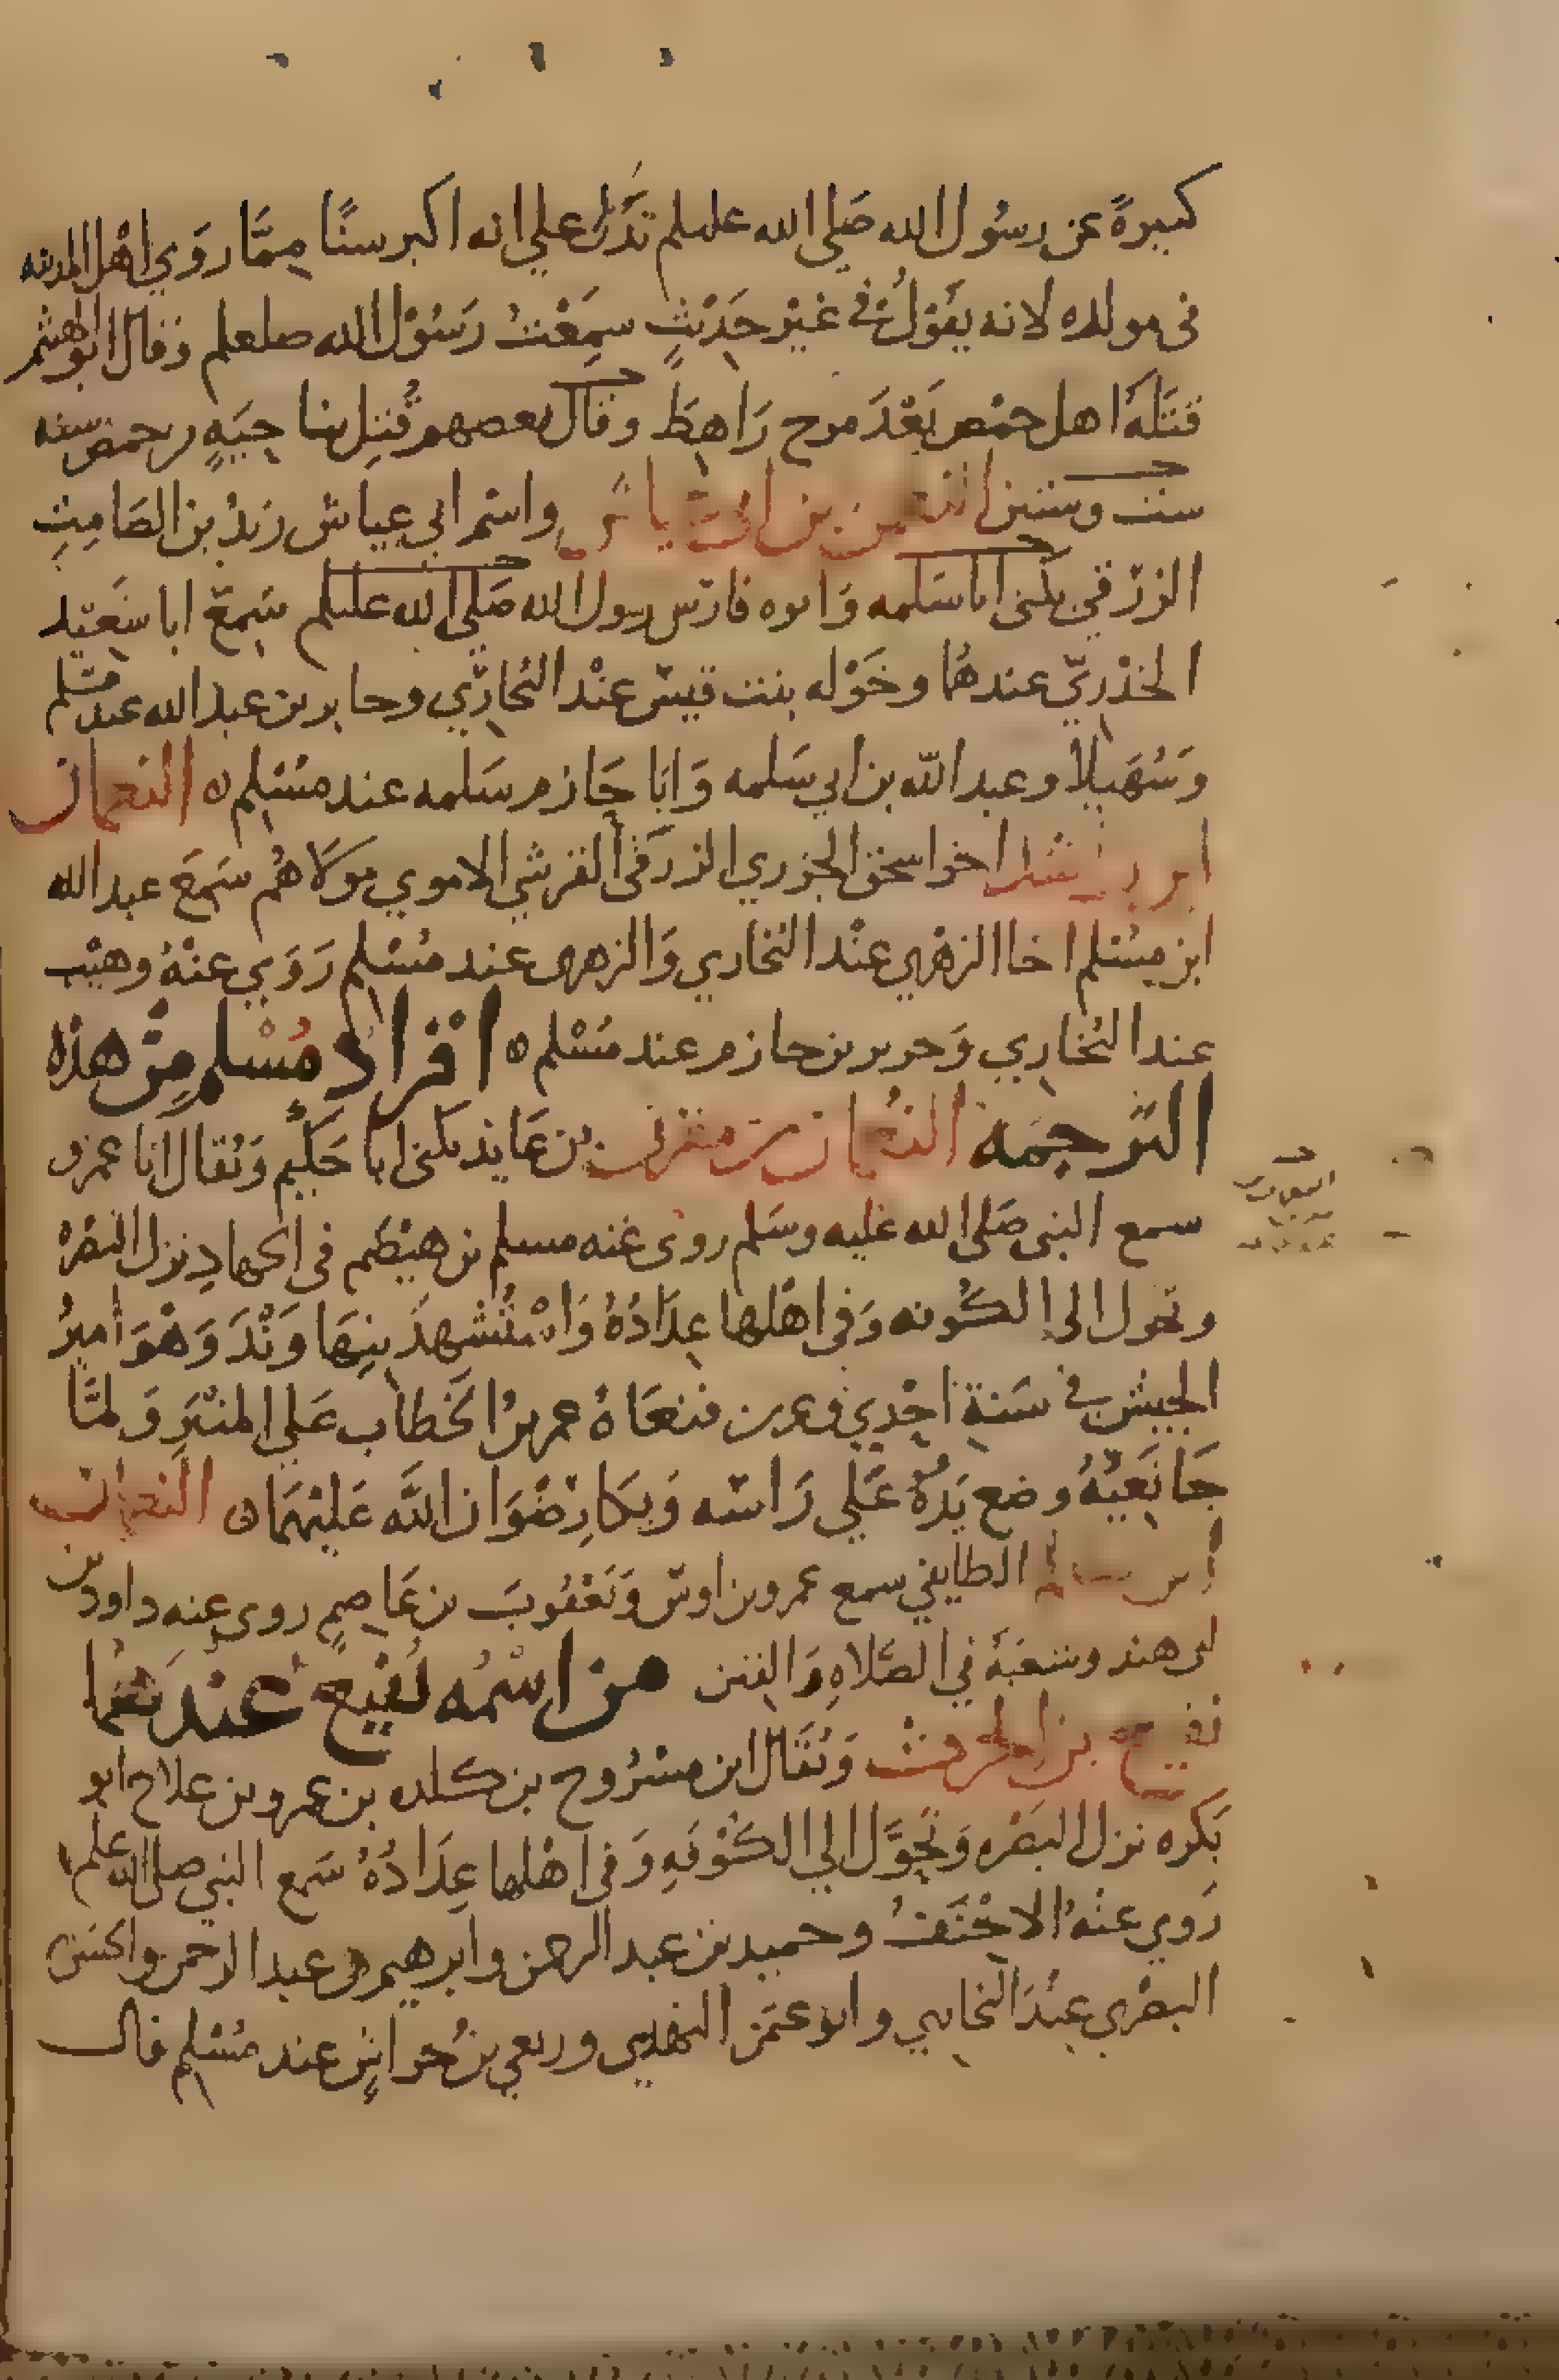 كبيرةً عن رسُول الله صَلي الله علىلم تدُل علي انه اكبر سنًا مِمَّا روَي اهْل المدىنه
فى مولده لانه يقوْلُ في غيْر حَدِيْثٍ سمِعْتُ رَسُوْل الله صلعلم وقال ابو الهىثم
قتَلهُ اهل حمْص بَعْدَ مرح رَاهِط وقال بعصهم قُتِل بناحِيَهٍ رحمص سنه
ست وستىن النعمن بن ابي عياش واسْم ابي عِياش زيْد بن الصَامِتِ
الزرَقي يكنى اباسَلمه وَابوه فارس رسول الله صَلي الله علىلم سَمِعَ ابا سَعيْد
الخدْرِيّ عندهُما وخَوْله بنت قيس عنْد البُخارِّي وحابر بن عبد الله عند مسْلم
وَسُهَيلا وعبد الله بن ابي سَلمه وَابَا حَازم سَلمه عند مسْلم ه النعمان
ابن راشد اخو اسحق الجزري الزرقى القرشي الاموي موْلاهُم سَمعَ عبد الله
ابن مسْلم اخا الزهْرِي عنْد البُخاري وَالزهرى عند مسْلم رَوَي عنْهُ وهيْب
عند البُخارِي وَحرير بن حازم عند مُسْلم ه افْرادُ مُسْلم مِنْ هَذه
التَرجمَه النُعمان بن مقرن بن عَايذ يكنى ابا حَكِيْم وَيُقال ابَا عمرو
سمع النبى صَلى الله عَليه وسَلم روى عَنه مسلم بن هيْصَم فى الجهادِ نزل البَصْرَهْ
وتحول الى الكُوفه وَفى اهْلها عِدَادُهُ وَاسْتُشْهِدَ بِنهَاوَنْدَ وَهْوَ أميرُ
الجيْش في سَنةِ احْدِي وعرىن فنعَاهُ عمر بنُ الخطاب عَلي المنْبَرِ وَلمَّا
جَا نَعيّهُ وضع يَدَهُ عَلي رَاسه وَبكا رِضْوَان الله عَليْهمَا ه النعمان
ابن سالم الطايفي سمع عمرو بن اوس وَيَعْقُوبَ بن عَاصِمٍ روى عنه داود بن
ابى هند وشعبَة في الصَّلاهِ وَالفتن من اسْمُه نُفَيْع عِنْدَهُما
نفيع بن الحرث وَيُقَال ابن مسْرُوح بن كلده بن عمرو بن علاح ابو
بَكره نزل البَصْره وَتحوَّل الي الكوْفهِ وَفى اهْلها عِدَادُهُ سَمع النبي صلى الله علىلم
رَوي عنْهُ الاحْنَفُ وحميد بن عبد الرحمن وابرهيم بن عبد الرحمن والحسَن
البصْرِي عنْدَ البُخارِي وابو عثمن النهْدِي وربعي بن حُراشٍ عند مُسْلم قال